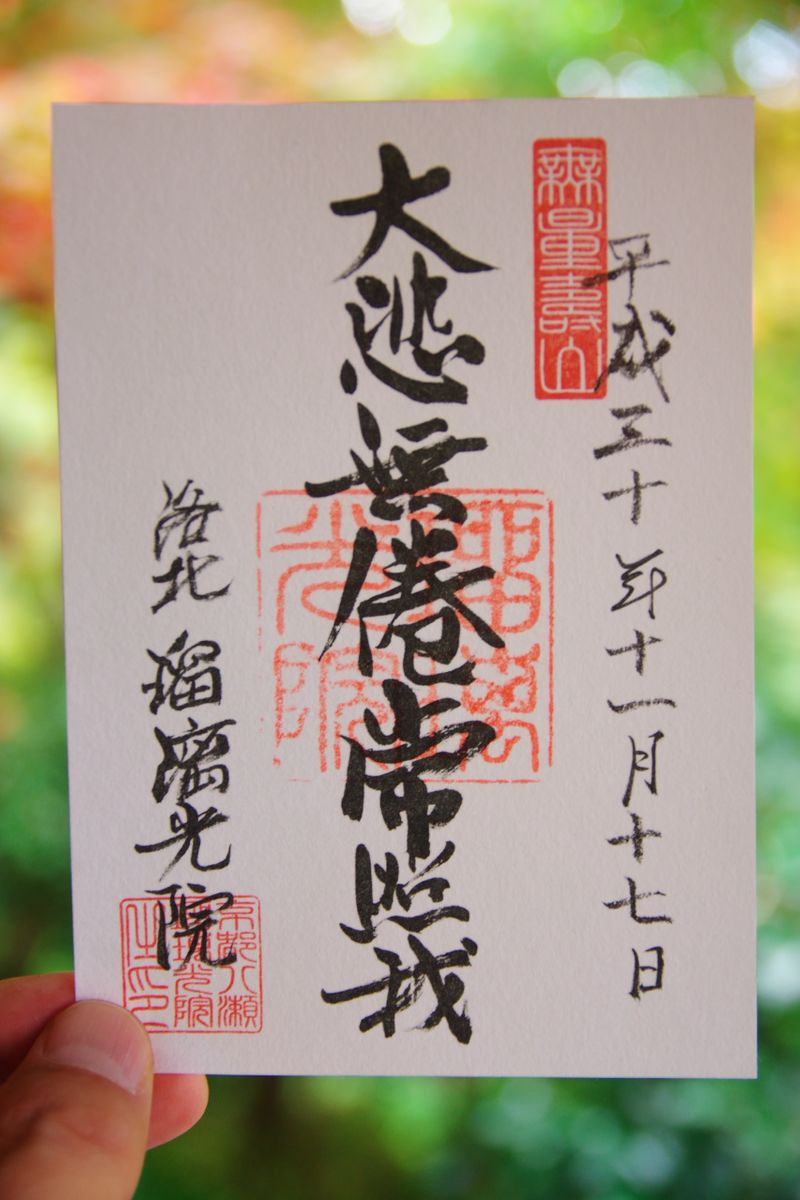 無量壽山
平成三十年十一月十七日
大悲無倦常照我
瑠璃光院
洛北 瑠璃光院
京都八瀬
瑠璃光院
主印